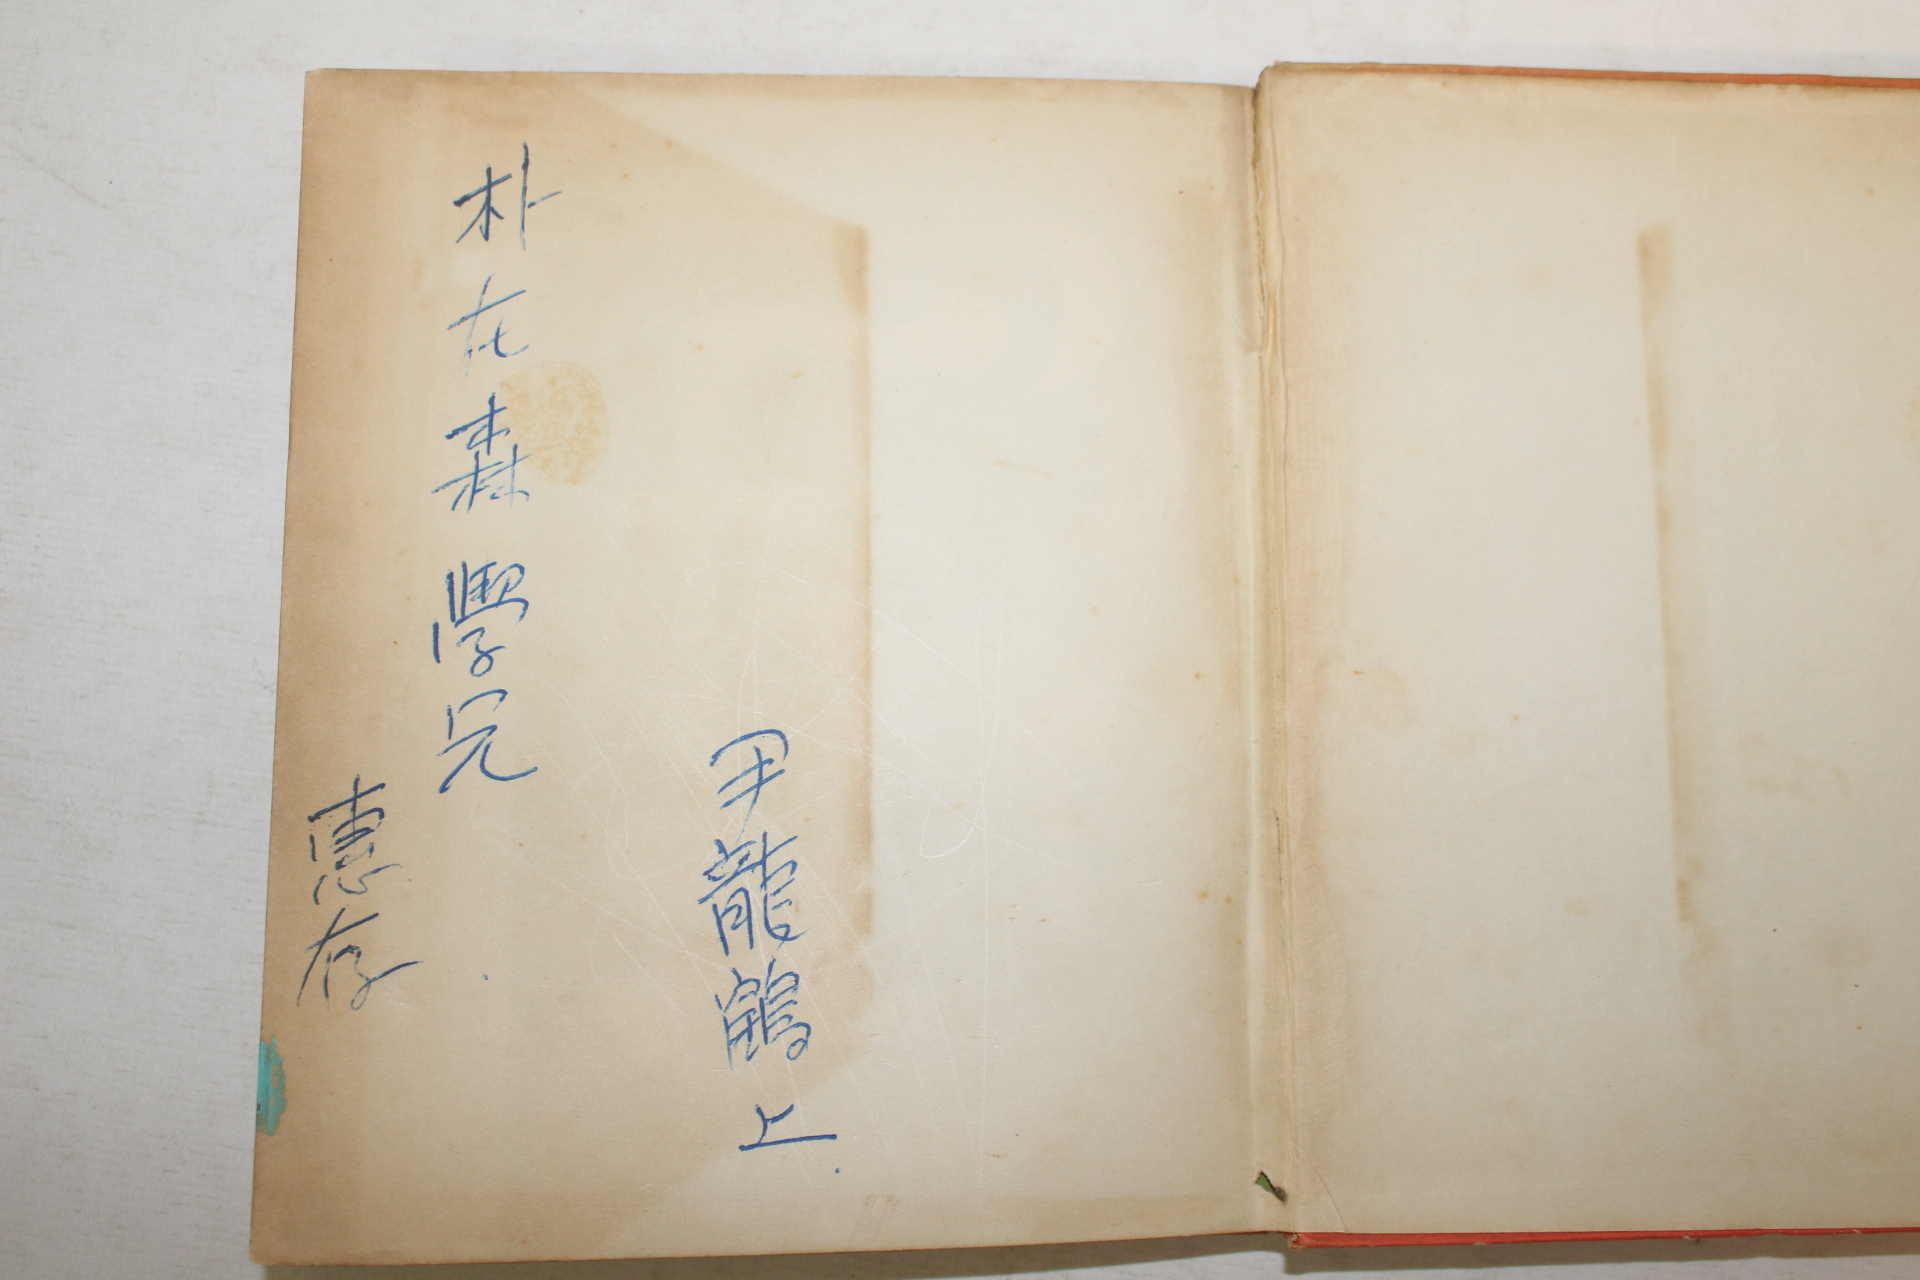 朴在森學兄
惠存
尹龍鶴上